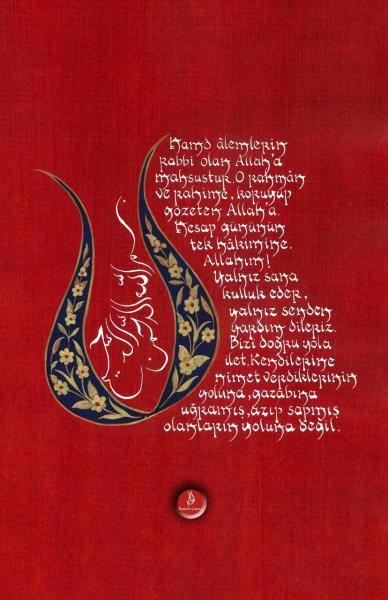 بسم الله الرحمن الرحيم
Hamd âlemlerin
rabbi olan Allah'a
mahsustur. O rahmân
ve rahime, koruyup
gözeten Allah'a.
Hesap gününün
tek hâkimine.
Allahım!
Yalnız sana
kulluk eder,
yalnız senden
yardım dileriz.
Bizi doğru yola
ilet. Kendilerine
nimet verdiklerinin
yoluna, gazabına
uğramış, azıp sapmış
olanların yoluna değil.